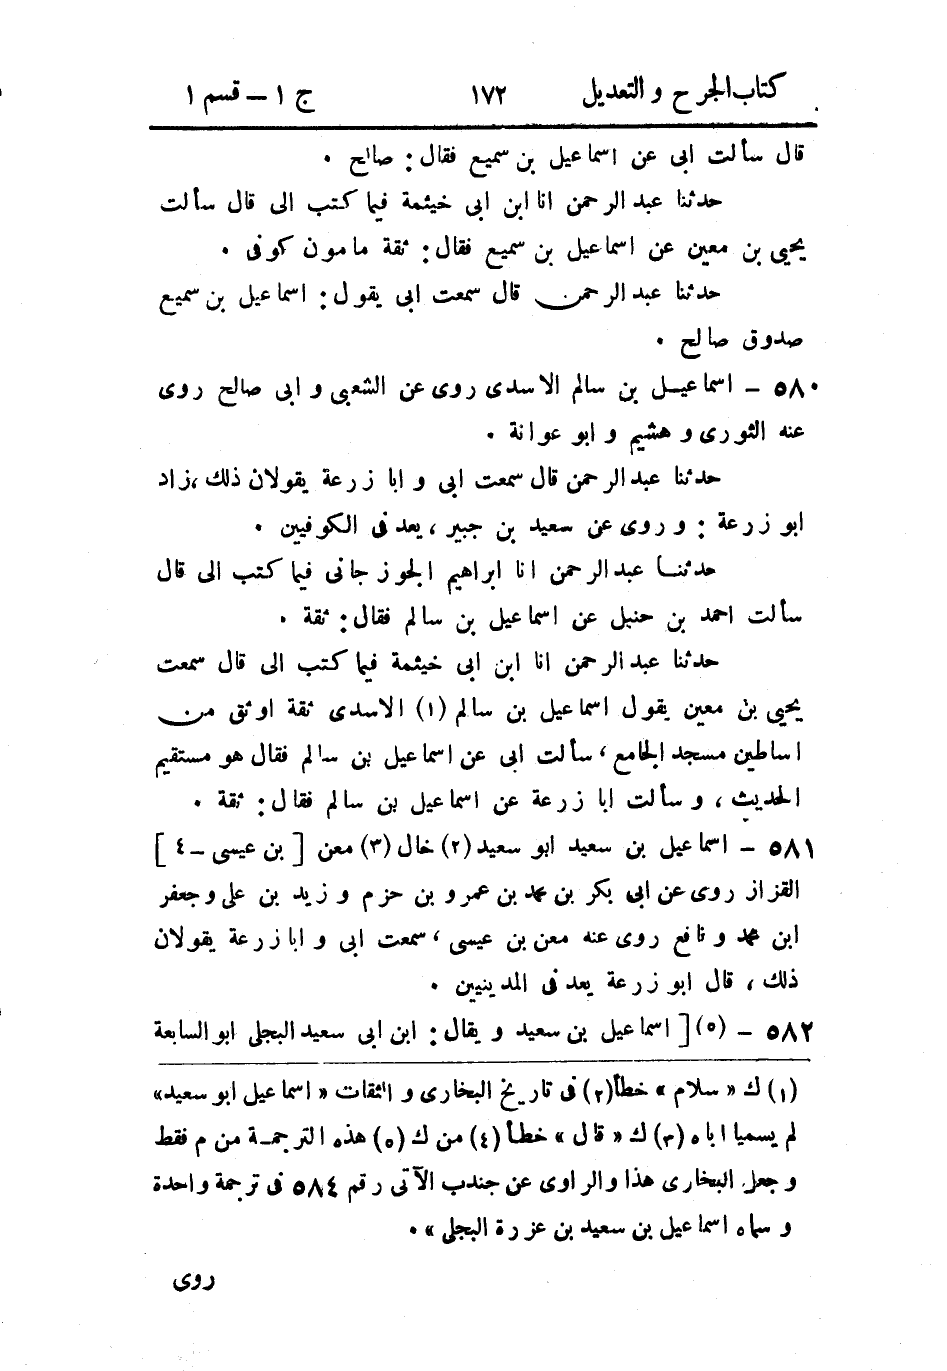 كتاب الجرح و التعديل ١٧٢ ج ١ – قسم ١
قال سألت ابى عن اسماعيل بن سميع فقال : صالح .
حدثنا عبد الرحمن انا ابن ابى خيثمة فيما كتب الى قال سألت
يحيى بن معين عن اسماعيل بن سميع فقال : ثقة مامون كوفى .
حدثنا عبد الرحمن قال سمعت ابى يقول : اسماعيل بن سميع
صدوق صالح .
٥٨٠ – اسماعيل بن سالم الاسدى روى عن الشعبى و ابى صالح روى
عنه الثورى و هشيم و ابو عوانة .
حدثنا عبد الرحمن قال سمعت ابى و ابا زرعة يقولان ذلك ، زاد
ابو زرعة : و روى عن سعيد بن جبير ، يعد فى الكوفيين .
حدثنا عبد الرحمن انا ابراهيم الجوزجانى فيما كتب الى قال
سألت احمد بن حنبل عن اسماعيل بن سالم فقال : ثقة .
حدثنا عبد الرحمن انا ابن ابى خيثمة فيما كتب الى قال سمعت
يحيى بن معين يقول اسماعيل بن سالم (١) الاسدى ثقة اوثق من
اساطين مسجد الجامع ، سألت ابى عن اسماعيل بن سالم فقال هو مستقيم
الحديث ، و سألت ابا زرعة عن اسماعيل بن سالم فقال : ثقة .
٥٨١ – اسماعيل بن سعيد ابو سعيد (٢) خال (٣) معن [ بن عيسى – ٤ ]
القزاز روى عن ابى بكر بن محمد بن عمرو بن حزم و زيد بن على و جعفر
ابن محمد و نافع روى عنه معن بن عيسى ، سمعت ابى و ابا زرعة يقولان
ذلك ، قال ابو زرعة يعد فى المدينيين .
٥٨٢ – (٥) [ اسماعيل بن سعيد و يقال : ابن ابى سعيد البجلى ابو السابعة
(١) ك « سلام » خطأ (٢) فى تاريخ البخارى و الثقات « اسماعيل ابو سعيد»
لم يسميا اباه (٣) ك « قال » خطأ (٤) من ك (٥) هذه الترجمة من م فقط
و جعل البخارى هذا والراوى عن جندب الآتى رقم ٥٨٤ فى ترجمة واحدة
و سماه اسماعيل بن سعيد بن عزرة البجلى » .
روى